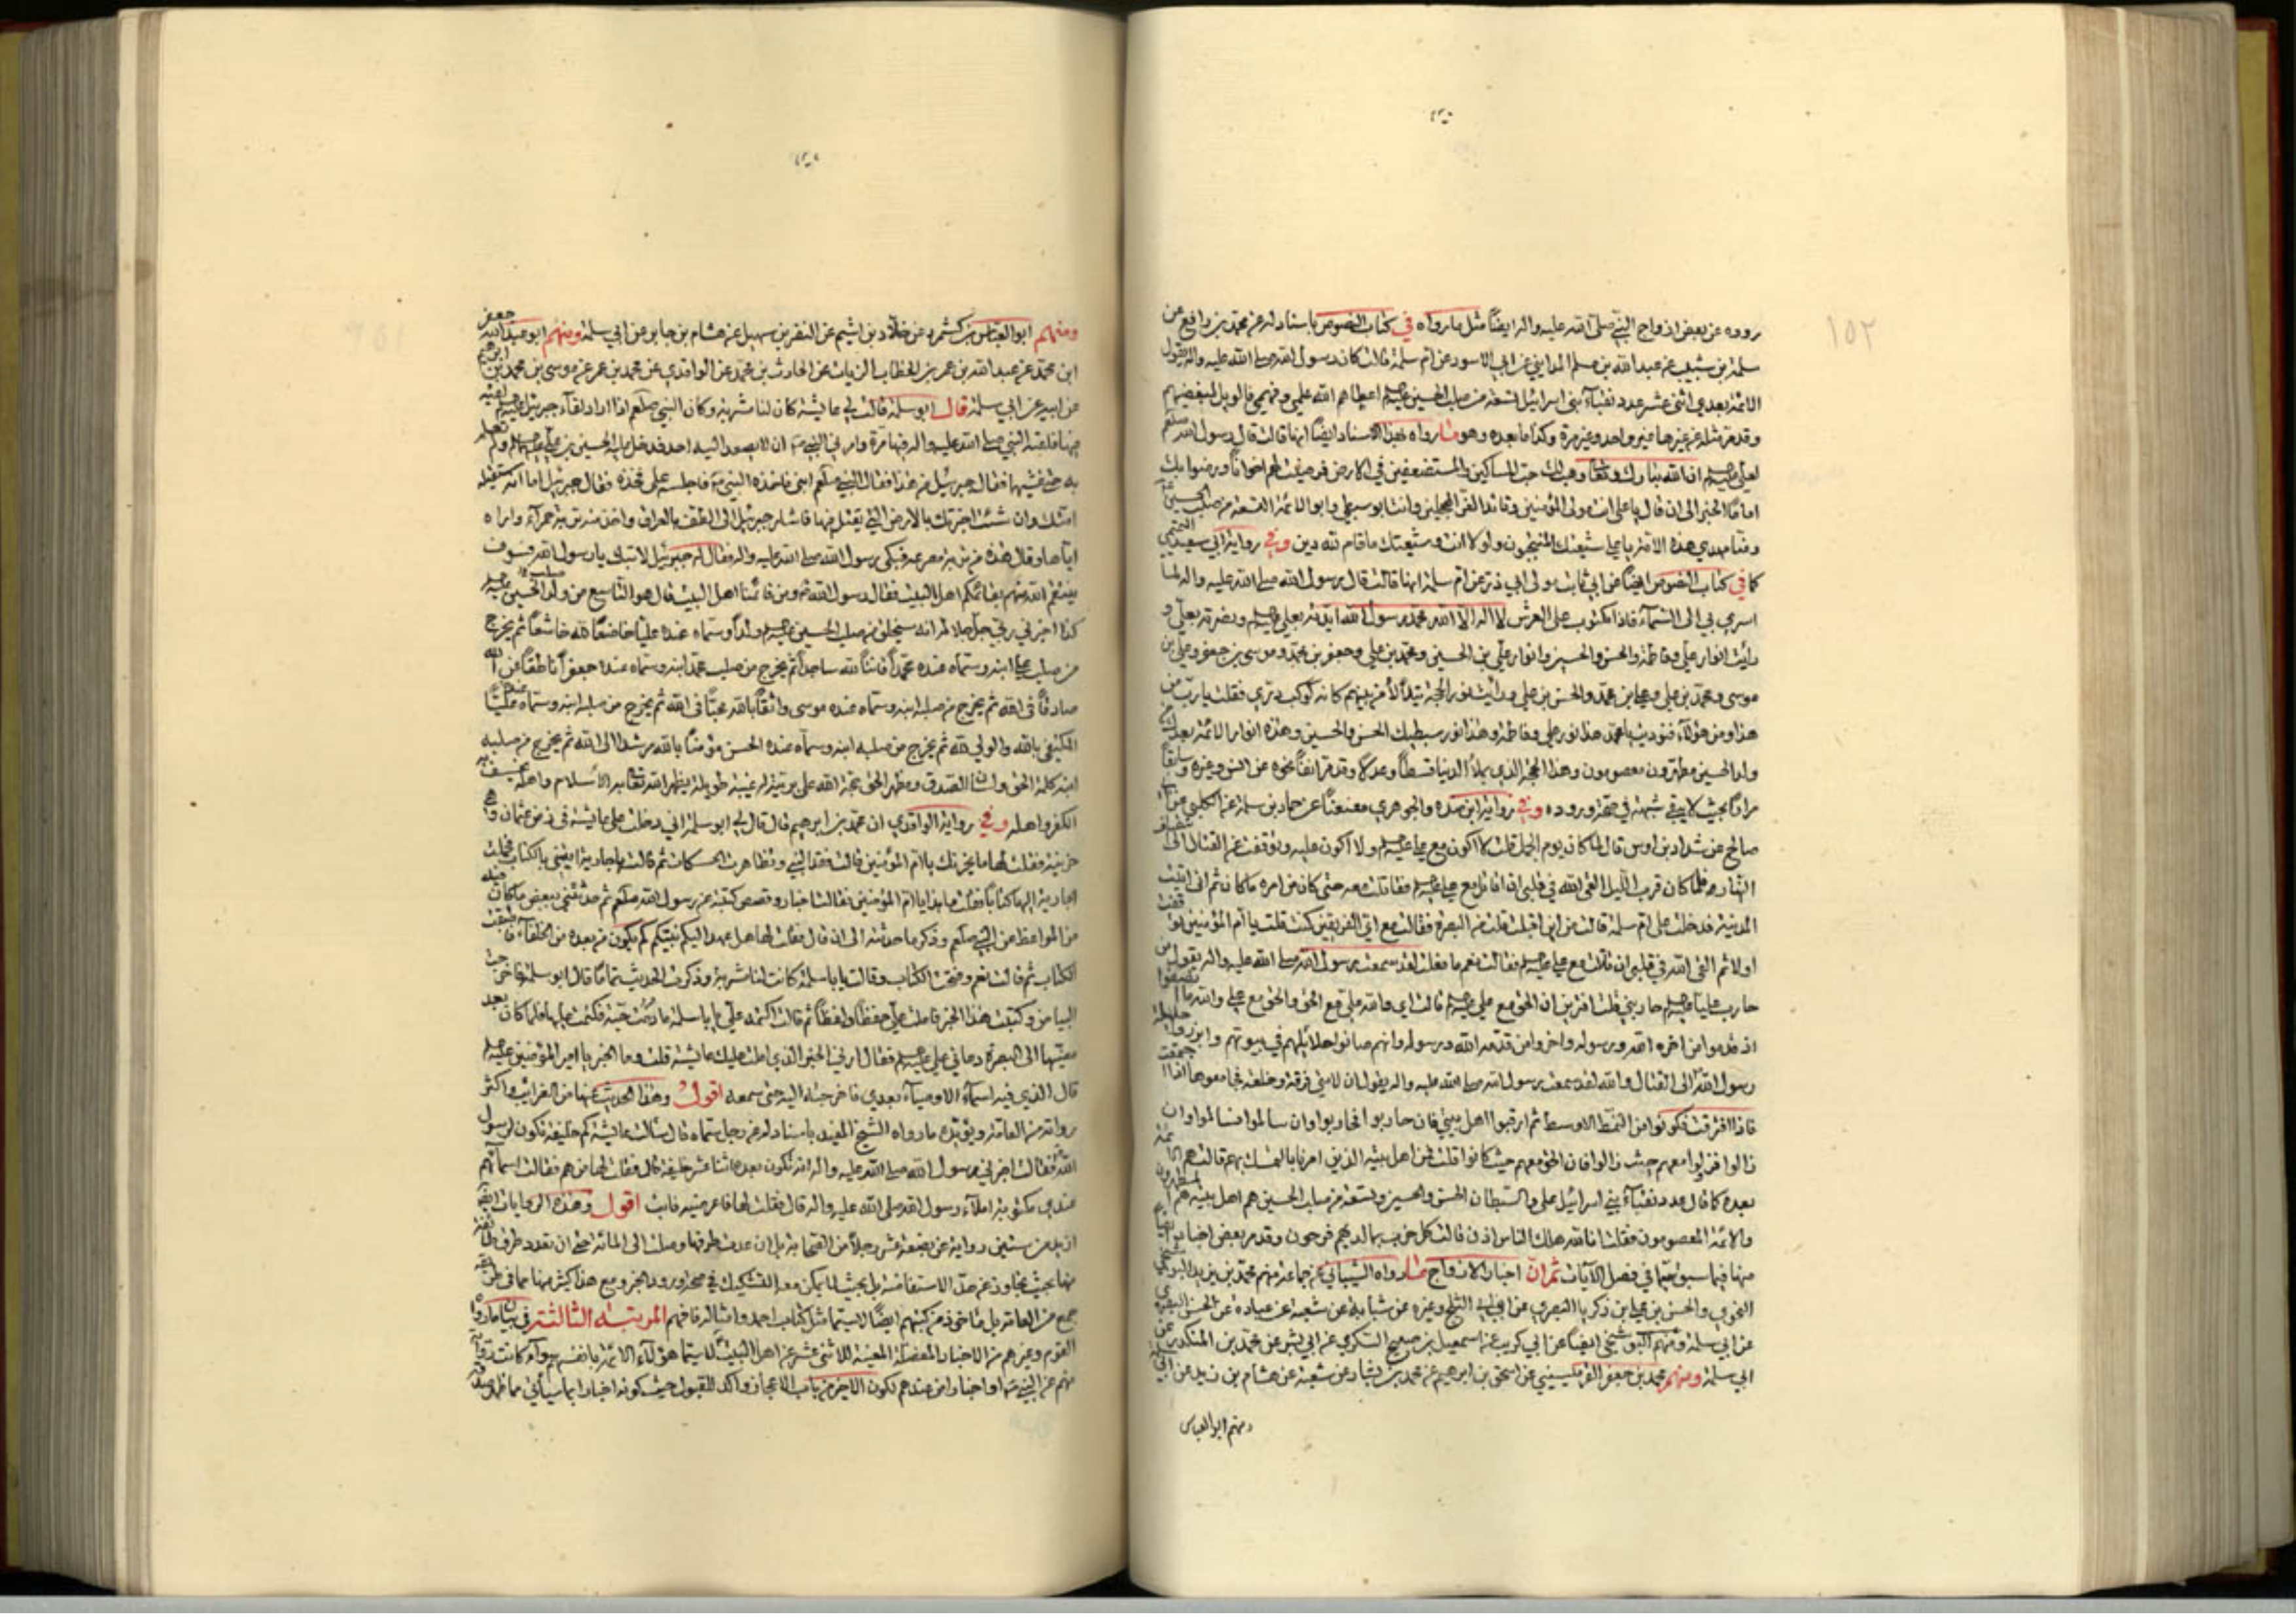 ١٥٢
رووه عن بعض ازواج النبي صلى الله عليه واله ايضاً مثل ما رواه في كتاب النصوص باسناد له عن محمد بن وافع عن
سلمة بن شبيب عن عبد الله بن مسلم المدايني عن ابي الاسود عن ام سلمة قالت كان رسول الله صلى الله عليه واله يقول
الائمة بعدي اثنى عشر عدد نقباء بني اسرائيل تسعة من صلب الحسين اعطاهم الله علمي وفهمي فالويل لمبغضيهم
وقد مر مثله عن غيرها غير واحد وغير مرة وكذا ما بعده وهو ما رواه بهذا الاسناد ايضاً انها قالت قال رسول الله صلعم
لعلي ان الله تبارك وتعالى وهب لك حب المساكين والمستضعفين في الارض فرضيت بهم اخواناً ورضوا بك
اماماً الخبر الى ان قال يا علي انت مولى المؤمنين وقائد الغر المحجلين وانت ابو سبطي وابو الائمة التسعة من صلب الحسين
ومنا مهدي هذه الامة يا علي شيعتك المنتجبون ولولا انت وشيعتك ما قام لله دين وفي رواية ابي سعيد
كما في كتاب النصوص ايضاً عن ابي ثابت مولى ابي ذر عن ام سلمة انها قالت قال رسول الله صلى الله عليه واله لما
اسري بي الى السماء فاذا مكتوب على العرش لا اله الا الله محمد رسول الله ايدته بعلي ونصرته بعلي و
رأيت انوار علي وفاطمة والحسن والحسين وانوار علي بن الحسين ومحمد بن علي وجعفر بن محمد وموسى بن جعفر وعلي بن
موسى ومحمد بن علي وعلي بن محمد والحسن بن علي ورأيت نور الحجة يتلألأ من بينهم كانه كوكب دري فقلت يا رب من
هذا ومن هؤلاء فنوديت يا محمد هذا نور علي وفاطمة وهذا نور سبطيك الحسن والحسين وهذه انوار الائمة بعدك من
ولد الحسين مطهرون معصومون وهذا الحجة الذي يملأ الدنيا قسطاً وعدلا وقد مر انفاً نحوه عن انس وغيره وسابقاً
مراراً بحيث لا يبقى شبهة في صحة وروده وفي رواية ابن مندة والجوهري معنعناً عن حماد بن سلمة عن الكلبي عن ابي
صالح عن شداد بن اوس قال لما كان يوم الجمل قلت لا اكون مع علي ولا اكون عليه وتوقفت عن القتال الى انتصاف
النهار فلما كان قرب الليل القى الله في قلبي ان اقاتل مع علي فقاتلت معه حتى كان من امره ما كان ثم اني اتيت
المدينة فدخلت على ام سلمة قالت من اين اقبلت قلت من البصرة فقالت مع اي الفريقين كنت قلت يا ام المؤمنين توقفت
اولا ثم القى الله في قلبي ان قاتلت مع علي فقالت نعم ما فعلت لقد سمعت رسول الله صلى الله عليه واله يقول من
حارب علياً حاربني قلت افترين ان الحق مع علي قالت اي والله علي مع الحق والحق مع علي والله ما انصفوا
اذ قدموا من اخره الله ورسوله واخروا من قدمه الله ورسوله وانهم صانوا حلائلهم في بيوتهم وابرزوا حليلة
رسول الله الى القتال والله لقد سمعت رسول الله صلى الله عليه واله يقول ان لامتي فرقة وخلفة فجامعوها اذا اجتمعت
فاذا افترقت فكونوا من النمط الاوسط ثم ارقبوا اهل بيتي فان حاربوا فحاربوا وان سالموا فسالموا وان
زالوا فزولوا معهم حيث زالوا فان الحق معهم حيث كانوا قلت من اهل بيته الذين امرنا بالتمسك بهم قالت هم الائمة
بعده كما قال عدد نقباء بني اسرائيل علي والسبطان الحسن والحسين وتسعة من صلب الحسين هم اهل بيته هم المطهرون
والائمة المعصومون فقلت انا لله هلك الناس اذن قالت كل حزب بما لديهم فرحون وقد مر بعض اخبار
منها فيما سبق حتى في فصل الآيات ثم ان اخبار الازواج ما رواه الشيباني عن جماعة منهم محمد بن يزيد
النحوي والحسن بن علي بن زكريا البصري عن ابي الثلج وغيره عن شبابة عن شعبة عن عبادة عن الحسن البصري
عن ابي سلمة ومنهم البوشنجي ايضاً عن ابي كريب عن اسمعيل بن صبيح اليشكري عن ابي بشر عن محمد بن المنكدر عن
ابي سلمة ومنهم محمد بن جعفر القرميسيني عن اسحق بن ابراهيم عن محمد بن بشار عن شعبة عن هشام بن زيد عن ابي
ومنهم ابو العباس
ومنهم ابو العباس بن كشمرد عن خلاد بن اشيم عن النضر بن سهيل عن هشام بن جابر عن ابي سلمة ومنهم ابو عبد الله جعفر
ابن محمد عن عبد الله بن عمر بن الخطاب الزيات عن الحارث بن محمد عن الواقدي عن محمد بن عمر عن موسى بن محمد بن ابرهيم
عن ابيه عن ابي سلمة قال ابو سلمة قالت لي عايشة كان لنا مشربة وكان النبي صلعم اذا اراد لقاء جبرئيل لقيه
فيها فلقيه النبي صلى الله عليه واله فيها مرة وامرني النبي ان لا يصعد اليه احد فدخل عليه الحسين بن علي ولم نعلم
به حتى غشيها فقال جبرئيل من هذا فقال النبي صلعم ابني فاخذه النبي فاجلسه على فخذه فقال جبرئيل اما انه ستقتله
امتك وان شئت اخبرتك بالارض التي يقتل فيها فاشار جبرئيل الى الطف بالعراق واخذ منه تربة حمراء واراه
اياها وقال هذه من تربة مصرعه فبكى رسول الله صلى الله عليه واله فقال له جبرئيل لا تبك يا رسول الله فسوف
ينتقم الله منهم بقائمكم اهل البيت فقال رسول الله ومن قائمنا اهل البيت قال هو التاسع من ولد الحسين
كذا اخبرني ربي جل جلاله انه سيخلق من صلب الحسين ولداً وسماه عنده علياً خاضعاً لله خاشعاً ثم يخرج
من صلب علي ابنه وسماه عنده محمداً قانتاً لله ساجداً ثم يخرج من صلب محمد ابنه وسماه عنده جعفراً ناطقاً عن الله
صادقاً في الله ثم يخرج من صلبه ابنه وسماه عنده موسى واثقاً بالله محباً في الله ثم يخرج من صلبه ابنه وسماه عنده علياً
المكتفي بالله والولي لله ثم يخرج من صلبه ابنه وسماه عنده الحسن مؤمناً بالله مرشداً الى الله ثم يخرج من صلبه
ابنه كلمة الحق ولسان الصدق ومظهر الحق حجة الله على بريته له غيبة طويلة يظهر الله تعالى به الاسلام واهله ويخسف به
الكفر واهله وفي رواية الواقدي ان محمد بن ابرهيم قال قال لي ابو سلمة اني دخلت على عايشة في زمن عثمان وهي
حزينة فقلت لها ما يحزنك يا ام المؤمنين قالت فقد النبي وتظاهرت الحسكات ثم قالت يا جارية ايتيني بالكتاب فحملت
الجارية اليها كتاباً فقلت ما هذا يا ام المؤمنين فقالت اخبار وقصص كتبته عن رسول الله صلعم ثم حدثتني ببعض ما كان فيه
من المواعظ عن النبي صلعم وذكر ما حدثته الى ان قال فقلت لها هل عهد اليكم نبيكم كم يكون من بعده من الخلفاء فاطبقت
الكتاب ثم قالت نعم وفتحت الكتاب وقالت يا ابا سلمة كانت لنا مشربة وذكرت الحديث تماماً قال ابو سلمة فاخرجت
البياض وكتبت هذا الخبر فاملت علي حفظاً ولفظاً ثم قالت اكتمه علي يا ابا سلمة ما دمت حية فكتمت عليها فلما كان بعد
مضيها الى البصرة دعاني علي فقال ارني الخبر الذي املت عليك عايشة قلت وما الخبر يا امير المؤمنين
قال الذي فيه اسماء الاوصياء بعدي فاخرجته اليه حتى سمعه اقول وهذا الحديث عنها من الغرائب واكثر
رواته من العامة ويؤيده ما رواه الشيخ المفيد باسناد له عن رجل سماه قال سألت عايشة كم خليفة تكون لرسول
الله فقالت اخبرني رسول الله صلى الله عليه واله انه تكون بعده اثنا عشر خليفة قال فقلت لها من هم فقالت اسماءهم
عندي مكتوبة املاء رسول الله صلى الله عليه واله قال فقلت لها فاعرضيه فابت اقول وهذه الروايات
ازيد من ستين رواية عن بضعة عشر رجلاً من الصحابة بل ان عدت طرقها وصلت الى المائة حتى ان تعدد طرق طائفة
منها بحيث يجاوز عن حد الاستفاضة بل بحيث لا يمكن معه التشكيك في صحة ورود الخبر ومع هذا كثير منها مما في
جمع من العامة بل مأخوذ من كتبهم ايضاً لا سيما مثل كتاب احمد وامثاله فافهم المرتبة الثالثة في بيان ما رووا
القوم وغيرهم من الاخبار المفصلة المعينة للاثني عشر عن اهل البيت لا سيما هؤلاء الائمة بانفسهم سواء كانت
منهم عن النبي او اخباراً من عندهم لكون الاخير من باب الاعجاز واكد للقبول حيث كونه اخبارا بما سيأتي مما ظهر صدقه